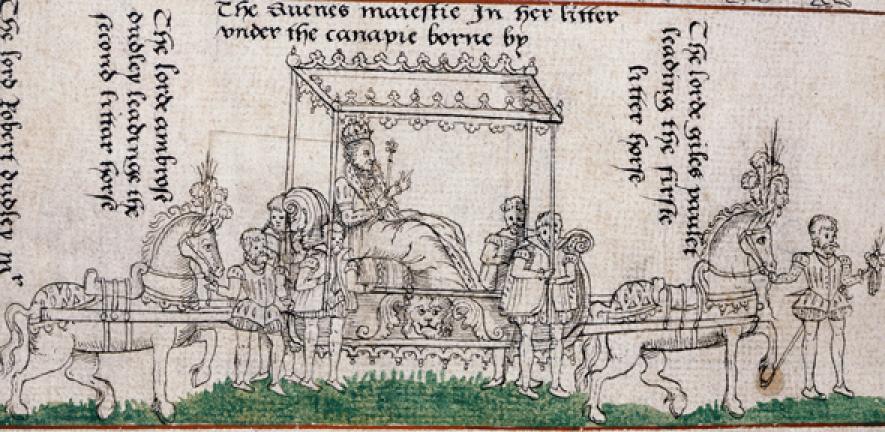 The Quenes maiestie In her litter
vnder the canapie borne by
The lord Robert dudley mr
The lorde ambrose
dudley leadinge the
second littar horse
The lorde giles paulet
leading the firste
litter horse